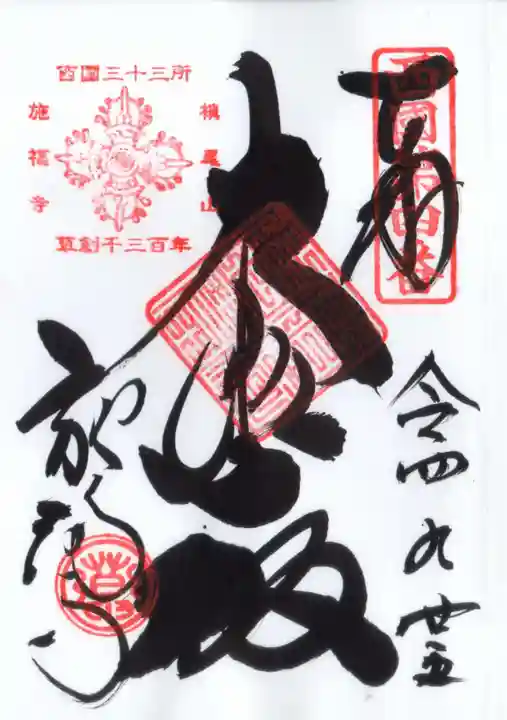 西國第四番
奉拝
令四 九 廿五
大悲殿
西國三十三所
槇尾山
施福寺
草創千三百年
施福寺